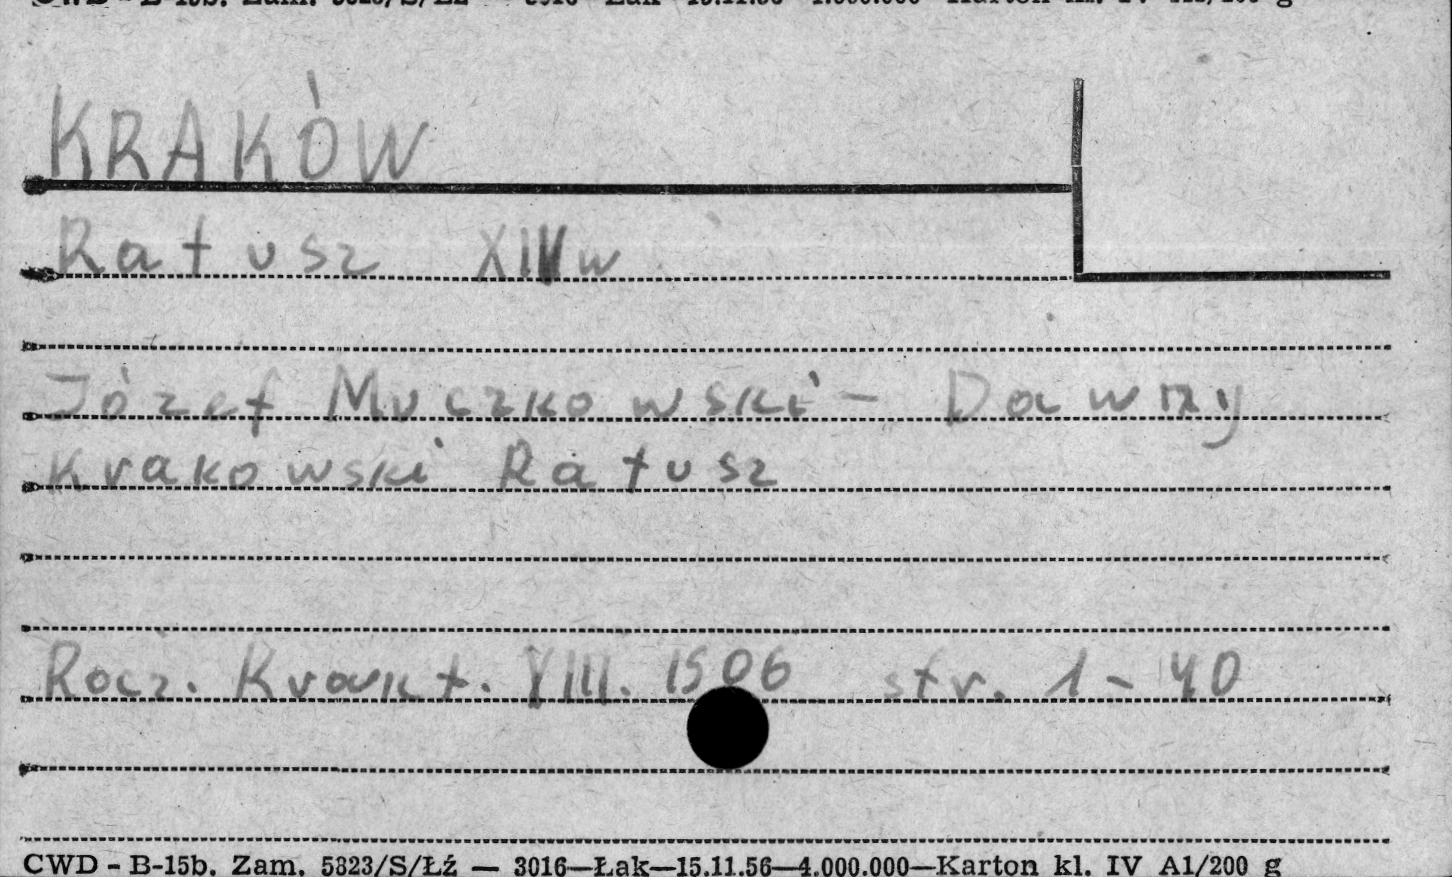 KRAKÓW
Ratusz XIV w
Józef Muczkowski - Dawny
Krakowski Ratusz
Rocz. Krakt. VIII. 1906 str. 1 - 40
CWD - B-15b. Zam. 5823/S/Łź — 3016—Łak—15.11.56—4.000.000—Karton kl. IV A1/200 g